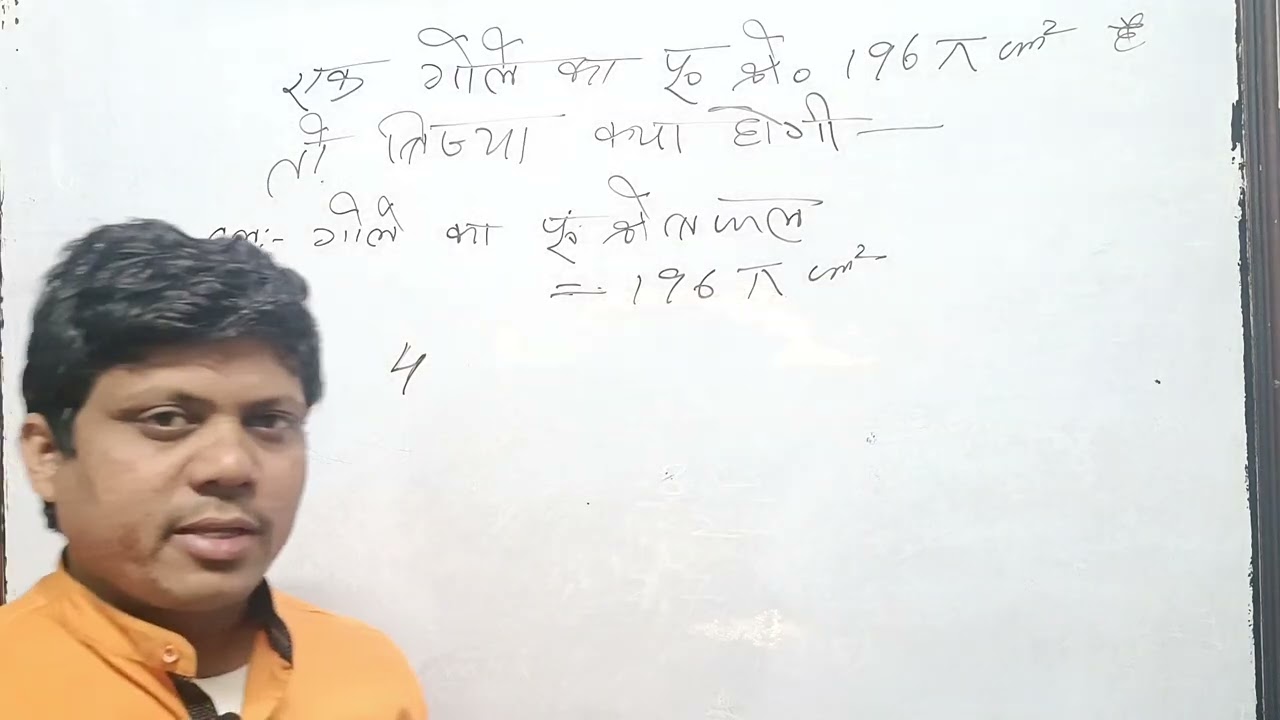 एक गोले का पृ० क्षे० 196 π cm² है
तो त्रिज्या क्या होगी —
गोले का पृ० क्षेत्रफल
= 196 π cm²
4